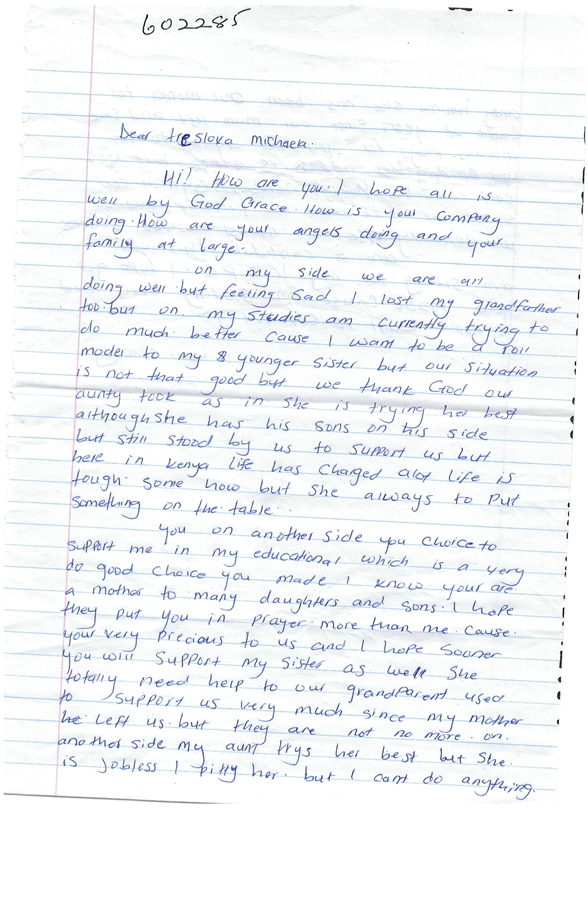 602285
Dear treslova Michaela.
Hi! How are you. I hope all is
well by God Grace. How is your company
doing. How are your angels doing and your
family at large.
on my side we are all
doing well but feeling sad I lost my grandfather
too. but on my studies am currently trying to
do much better cause I want to be a roll
model to my 8 younger sister but our situation
is not that good but we thank God our
aunty took as in she is trying her best
although she has his sons on his side
but still stood by us to support us but
here in Kenya life has Charged alot life is
tough. some how but she always to put
something on the table.
you on another side you choice to
support me in my educational which is a very
do good choice you made I know your are
a mother to many daughters and sons. I hope
they put you in prayer more than me. cause.
your very precious to us and I hope sooner
you will support my sister as well she
totally need help to our grandparent used
to support us very much since my mother
he left us. but they are not no more. on.
another side my aunt trys her best but she.
is jobless I pitty her. but I cant do anything.